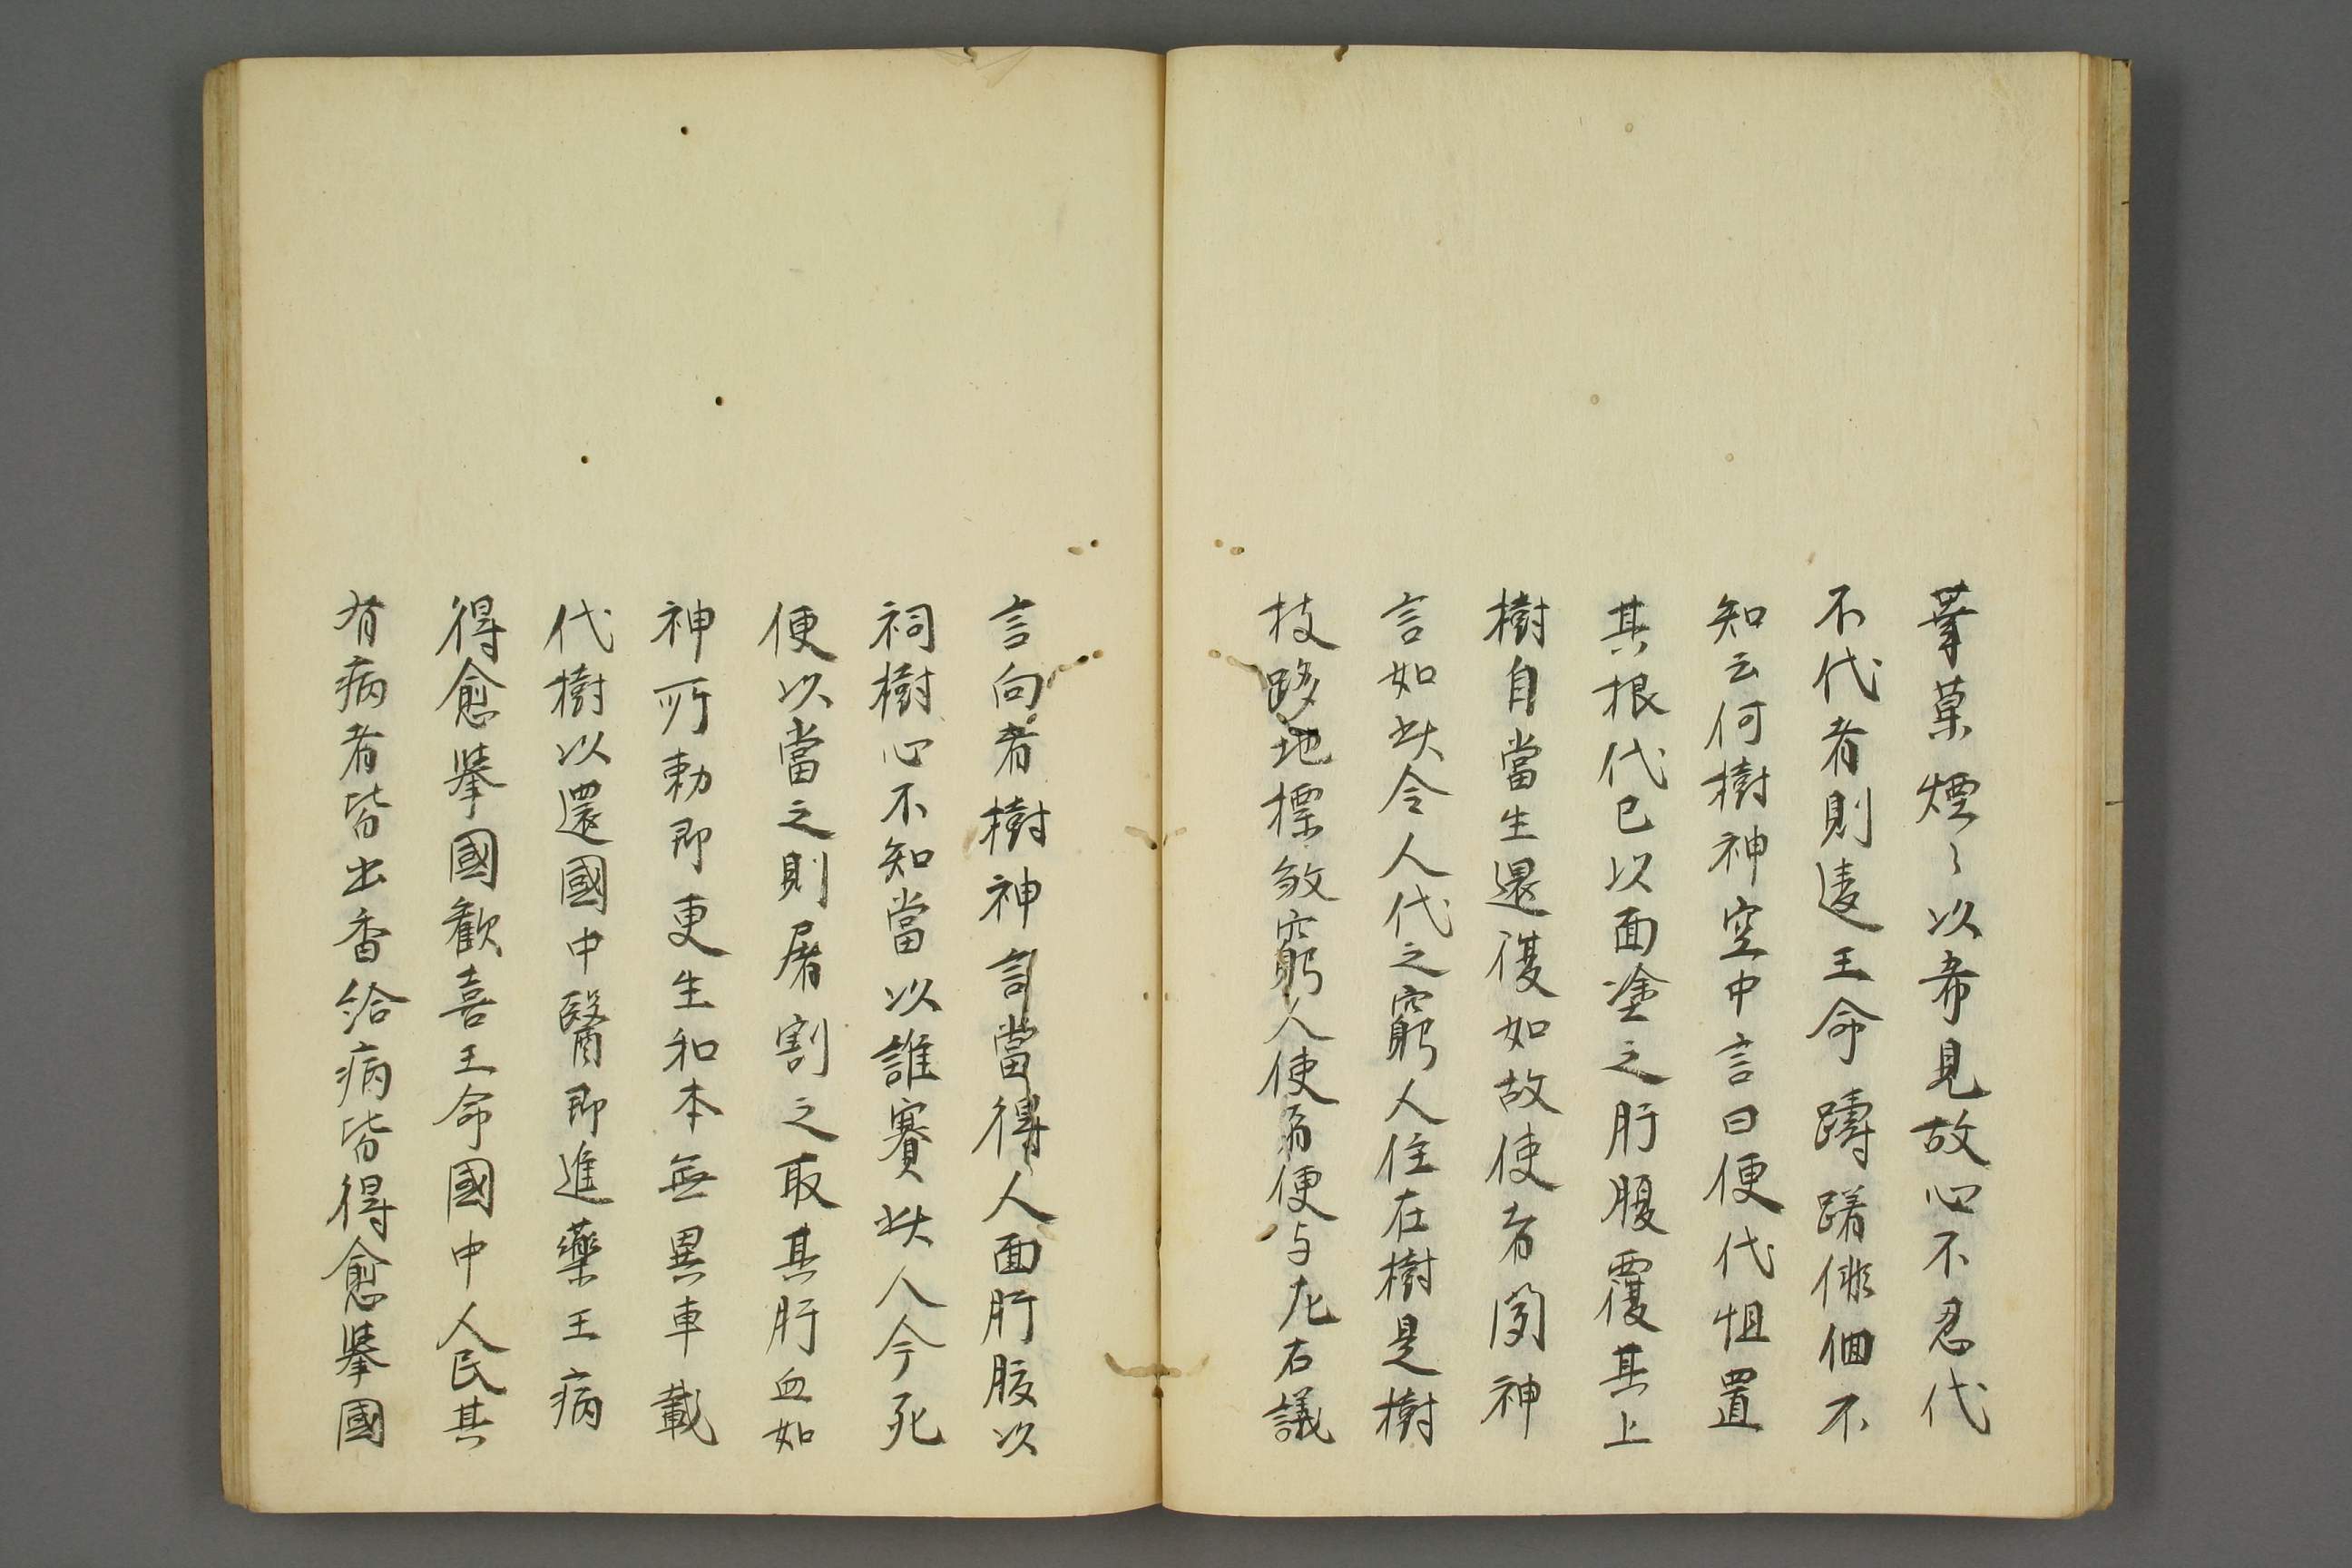 葉菓煙〻以希見故心不忍代
不代者則違王命躊躇俳佪不
知云何樹神空中言曰便代怚置
其根代已以面塗之肝腹覆其上
樹自當生還復如故使者聞神
言如此令人代之窮人住在樹是樹
枝跢地標煞窮人使者便与左右議
言向者樹神言當得人面肝腹以
祠樹心不知當以誰賽此人今死
便以當之則屠割之取其肝血如
神所勅即更生和本無異車載
代樹以還國中醫即進藥王病
得愈舉國歡喜王命國中人民其
有病者皆出香給病皆得愈舉國